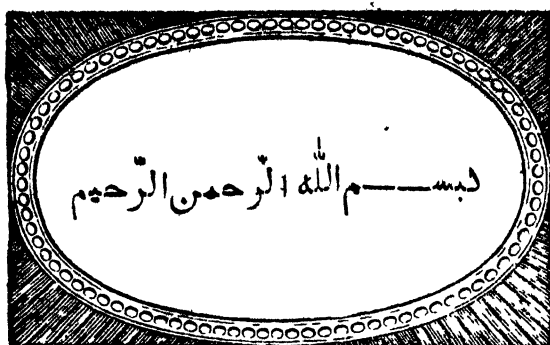 بســـم الله الرّحمن الرّحيم